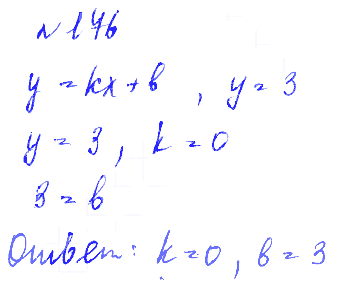 №176
y = kx + b , y = 3
y = 3 , k = 0
3 = b
Ответ: k = 0 , b = 3